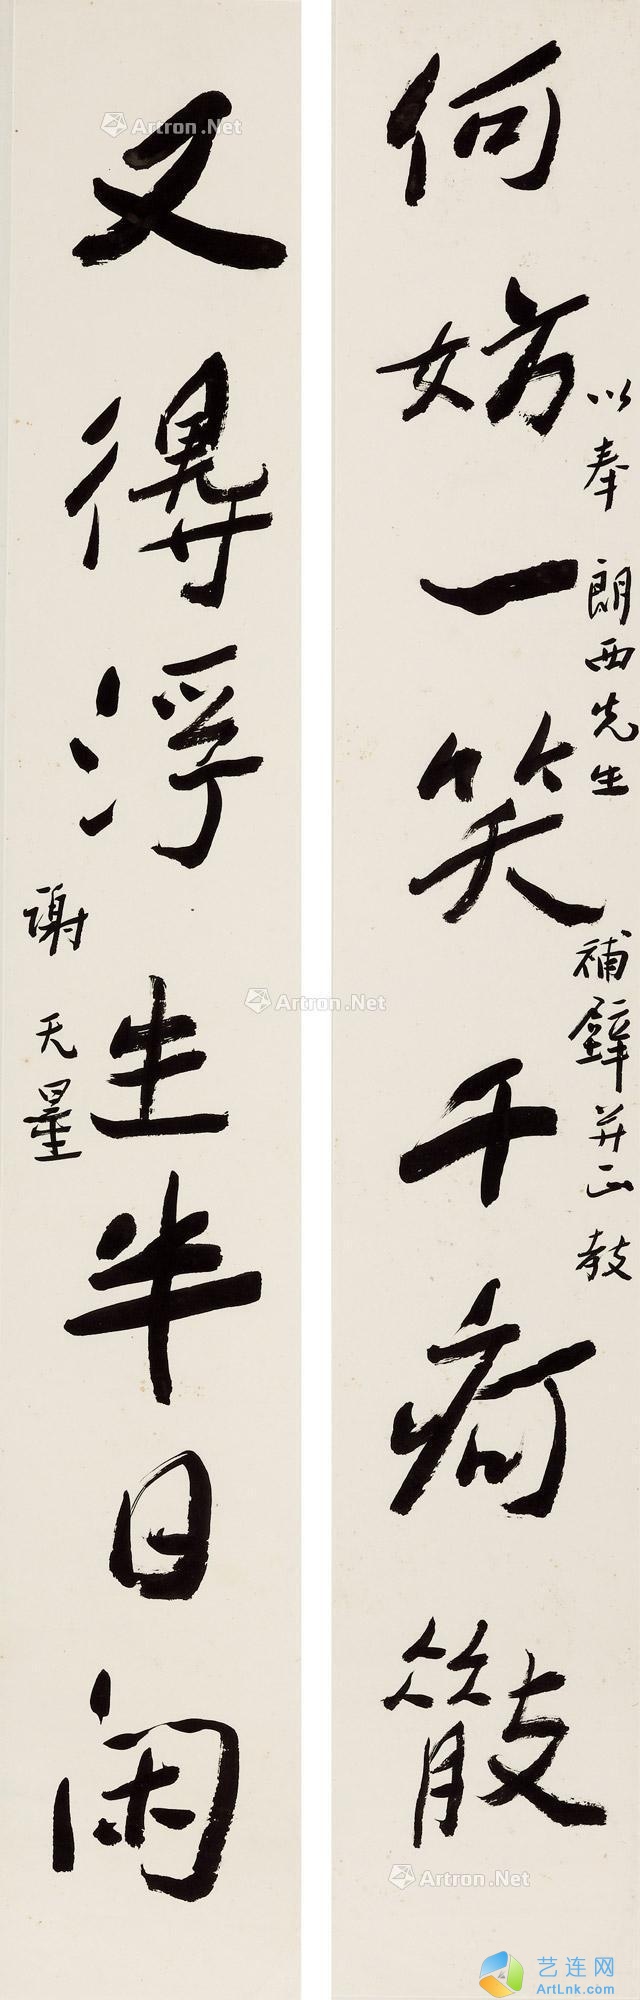 何妨一笑千疴散
以奉 朗西先生 補壁并正 教
又得浮生半日闲
谢无量
Artron.Net
Artron.Net
Artron.Net
艺连网
ArtLnk.com